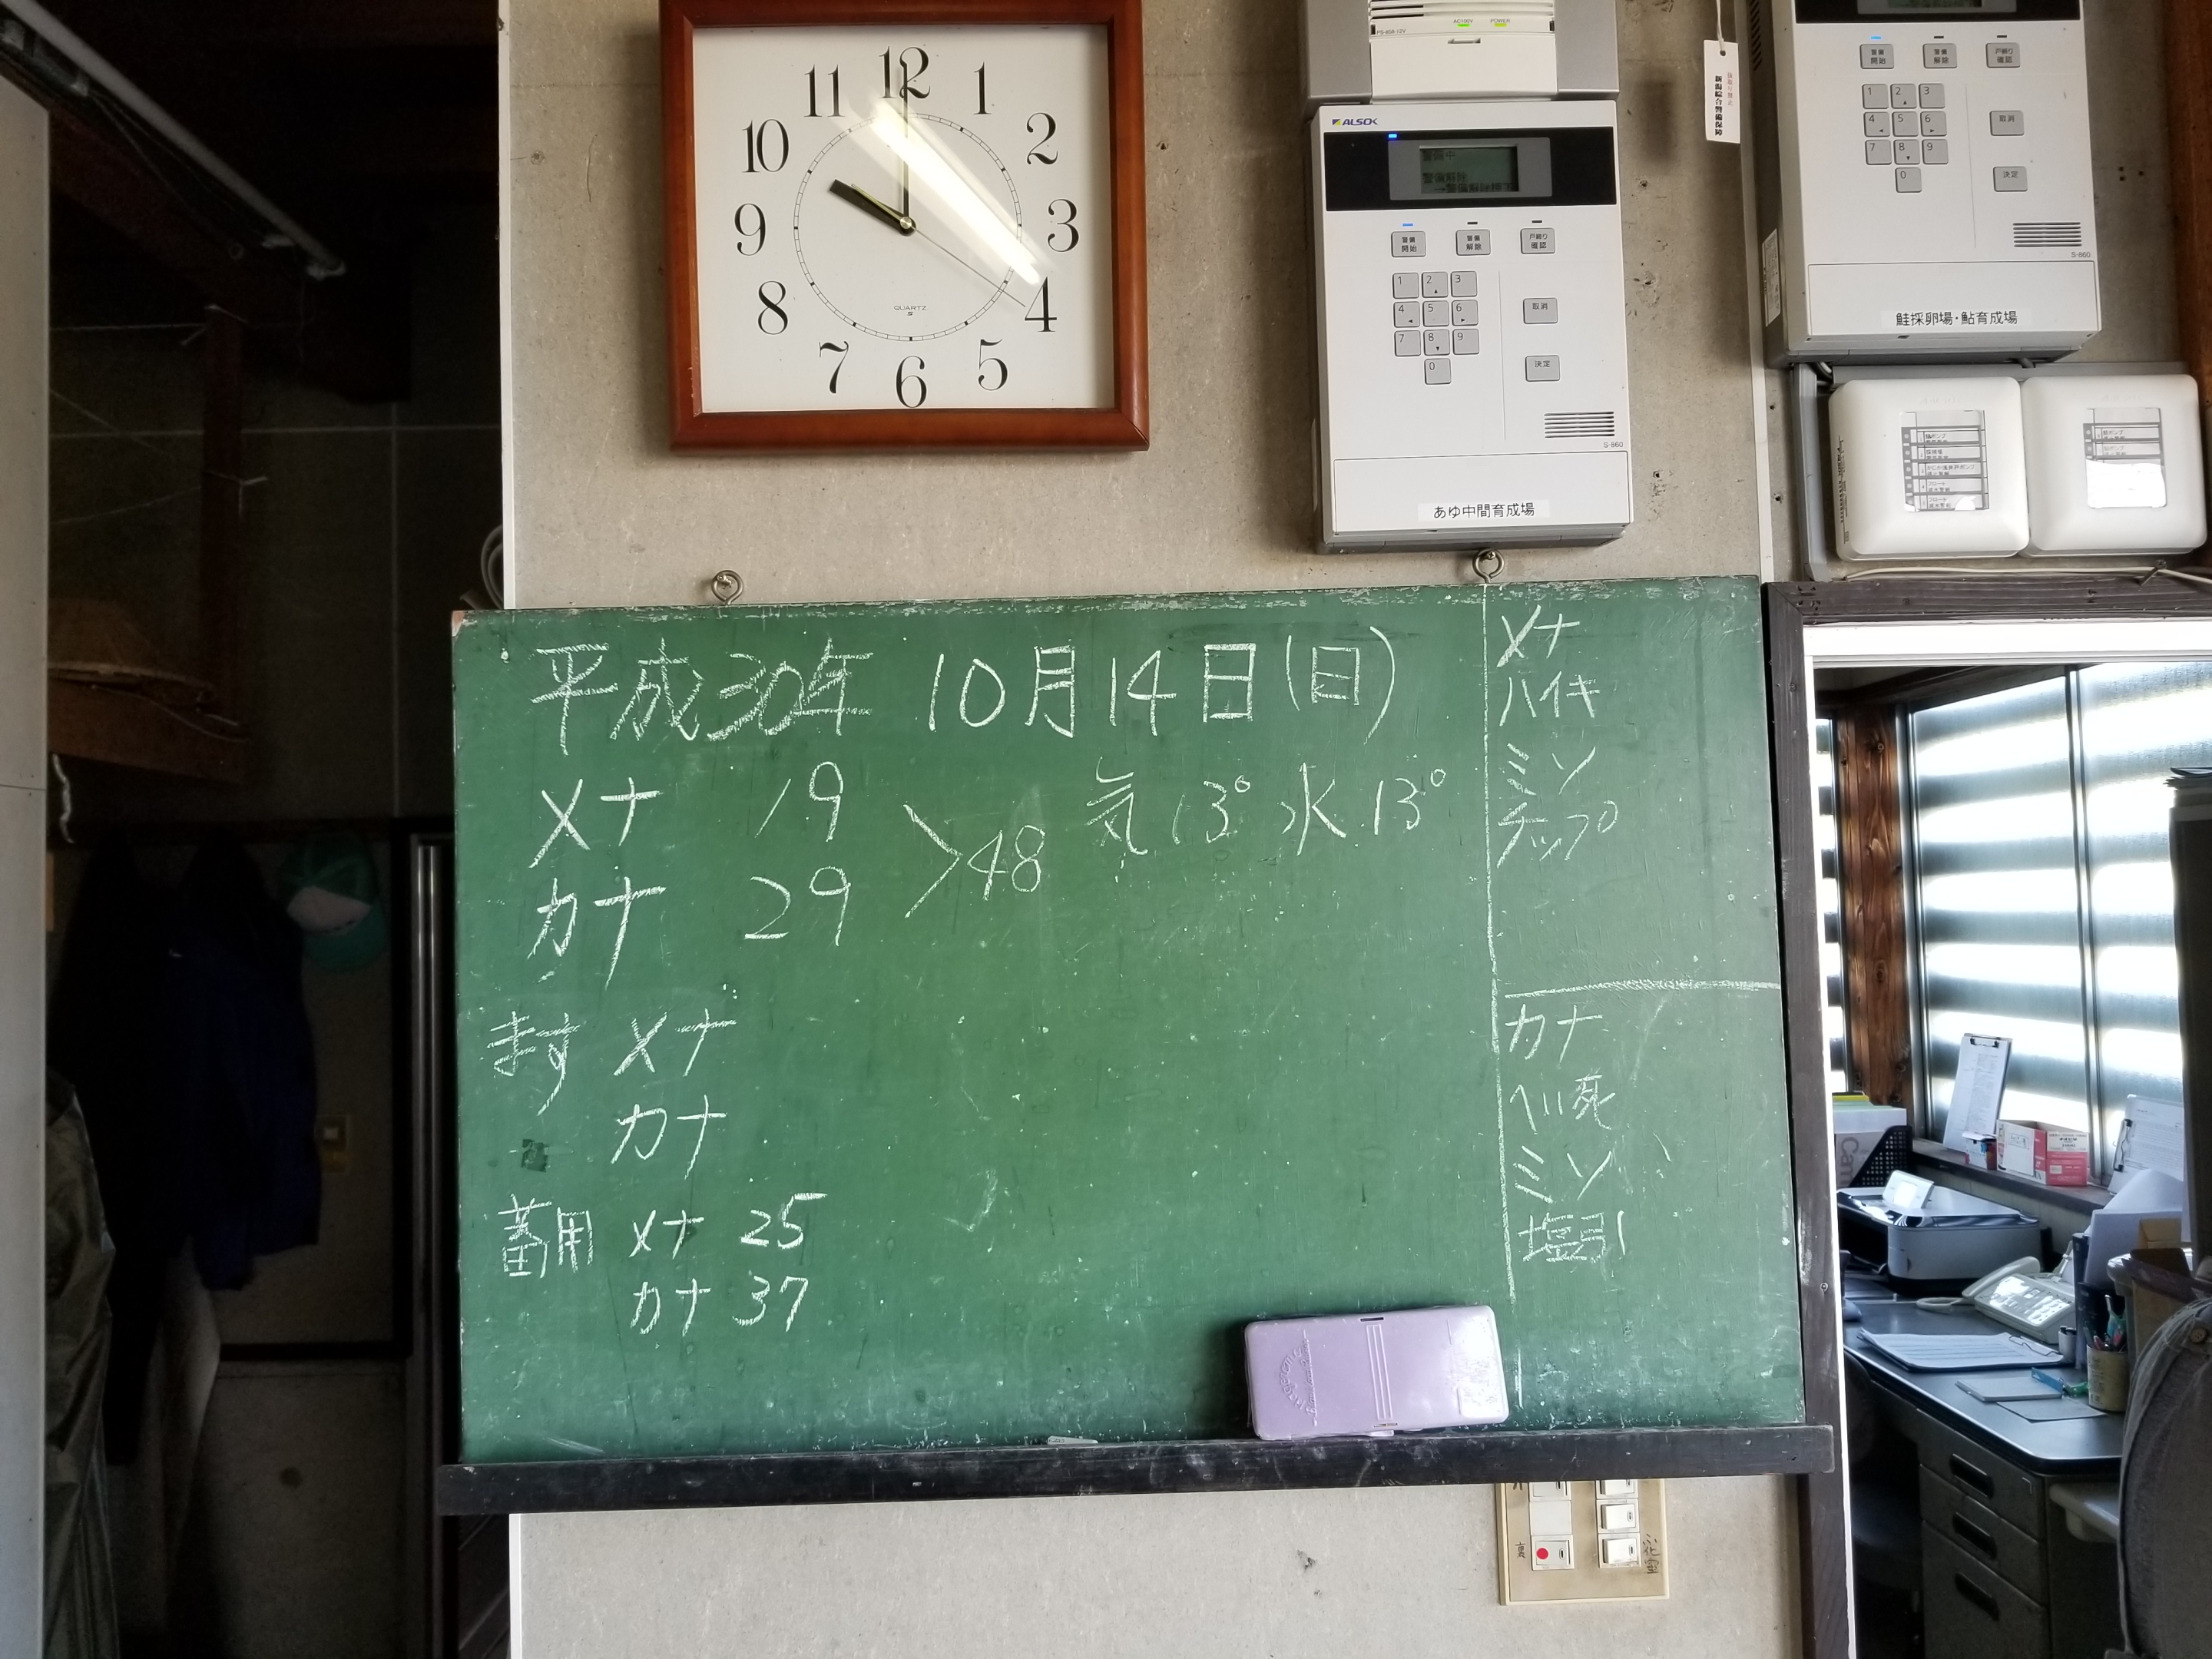 12
11
1
10
2
9
3
8
4
7
5
6
QUARTZ
AC100V POWER
PS-65R-12V
ALSOK
警備中
警備解除
警備開始
警備解除
戸締り確認
1 2 3
4 5 6
7 8 9
0
取消
決定
S-860
あゆ中間育成場
新潟綜合警備保障
警備開始
警備解除
戸締り確認
1 2 3
4 5 6
7 8 9
0
取消
決定
S-860
鮭採卵場・鮎育成場
平成30年 10月14日(日)
メナ 19
カナ 29
>48
気13° 水13°
ます メナ
カナ
蓄用 メナ 25
カナ 37
メナ
ハイキ
ミソ
チップ
カナ
ヘイ死
ミソ
塩引
裏